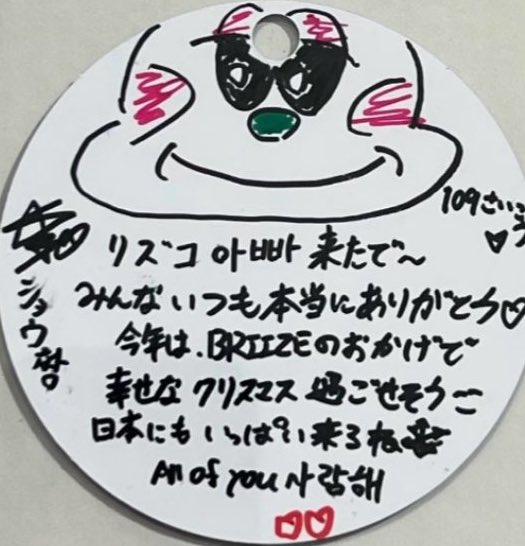 109さい
リズコ 아빠 来たで〜
みんないつも本当にありがとう♡
今年は、BRIIZEのおかげで
幸せな クリスマス 過ごせそう
日本にも いっぱい来るね
All of you 사랑해
ショウ짱